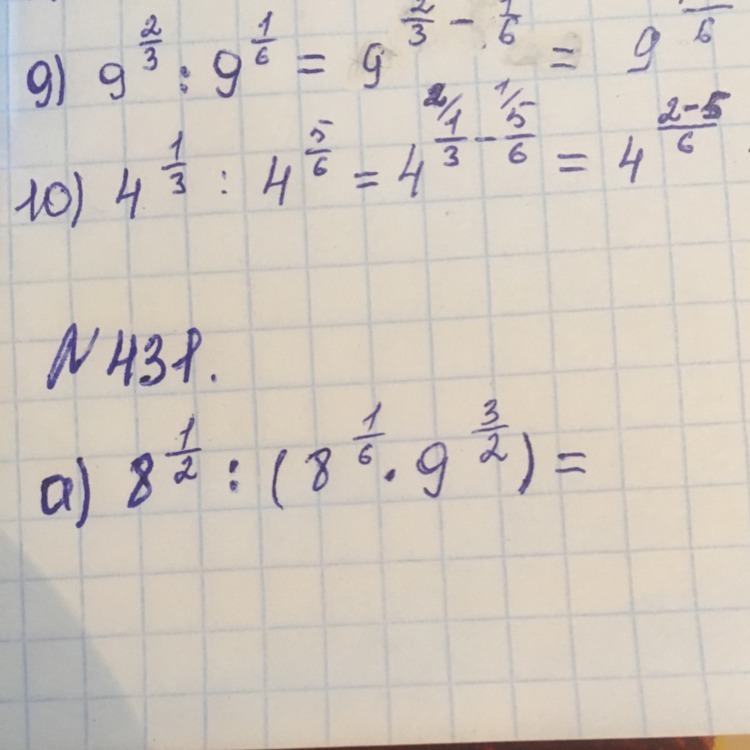 9) 9^{2/3} : 9^{1/6} = 9^{2/3 - 1/6} = 9
10) 4^{1/3} : 4^{5/6} = 4^{2/ 1/3 - 1/ 5/6} = 4^{(2-5)/6}
N 431.
а) 8^{1/2} : (8^{1/6} · 9^{3/2}) =